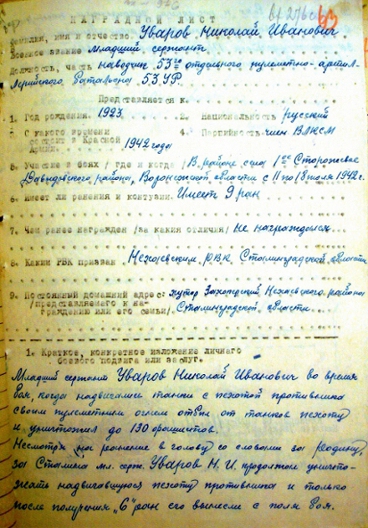 НАГРАДНОЙ ЛИСТ
Фамилия, имя и отчество Уваров Николай Иванович
Военное звание Младший сержант
Должность, часть наводчик 53го отдельного пулеметно-артил-
лерийского батальона 53 УР.
Представляется к
1. Год рождения 1923 2. национальность русский
3. С какого времени состоит в Красной Армии 1942 года 4. Партийность член ВЛКСМ
5. Участие в боях /где и когда/ В районе села 1ое Сторожевое
Давыдовского района, Воронежской области с 11 по 18 июля 1942 г.
6. Имеет ли ранения и контузии. Имеет 9 ран
7. Чем ранее награжден /за какия отличия/ Не награждался
8. Каким РВК призван Нехаевским РВК Сталинградской области
9. Постоянный домашний адрес: хутор Захоперский, Нехаевского района
/представляемого к на-
граждению или его семьи/. Сталинградской области
1. Краткое, конкретное изложение личнаго
боевого подвига или заслуг.
Младший сержант Уваров Николай Иванович во время
боя когда надвигались танки с пехотой противника
своим пулеметным огнем отсек от танков пехоту
и уничтожил до 130 фашистов.
Несмотря на ранение в голову со словами за Родину,
за Сталина мл. серж. Уваров Н. И. продолжал уничто-
жать надвигающуюся пехоту противника и только
после получения "6" ран его вынесли с поля боя.